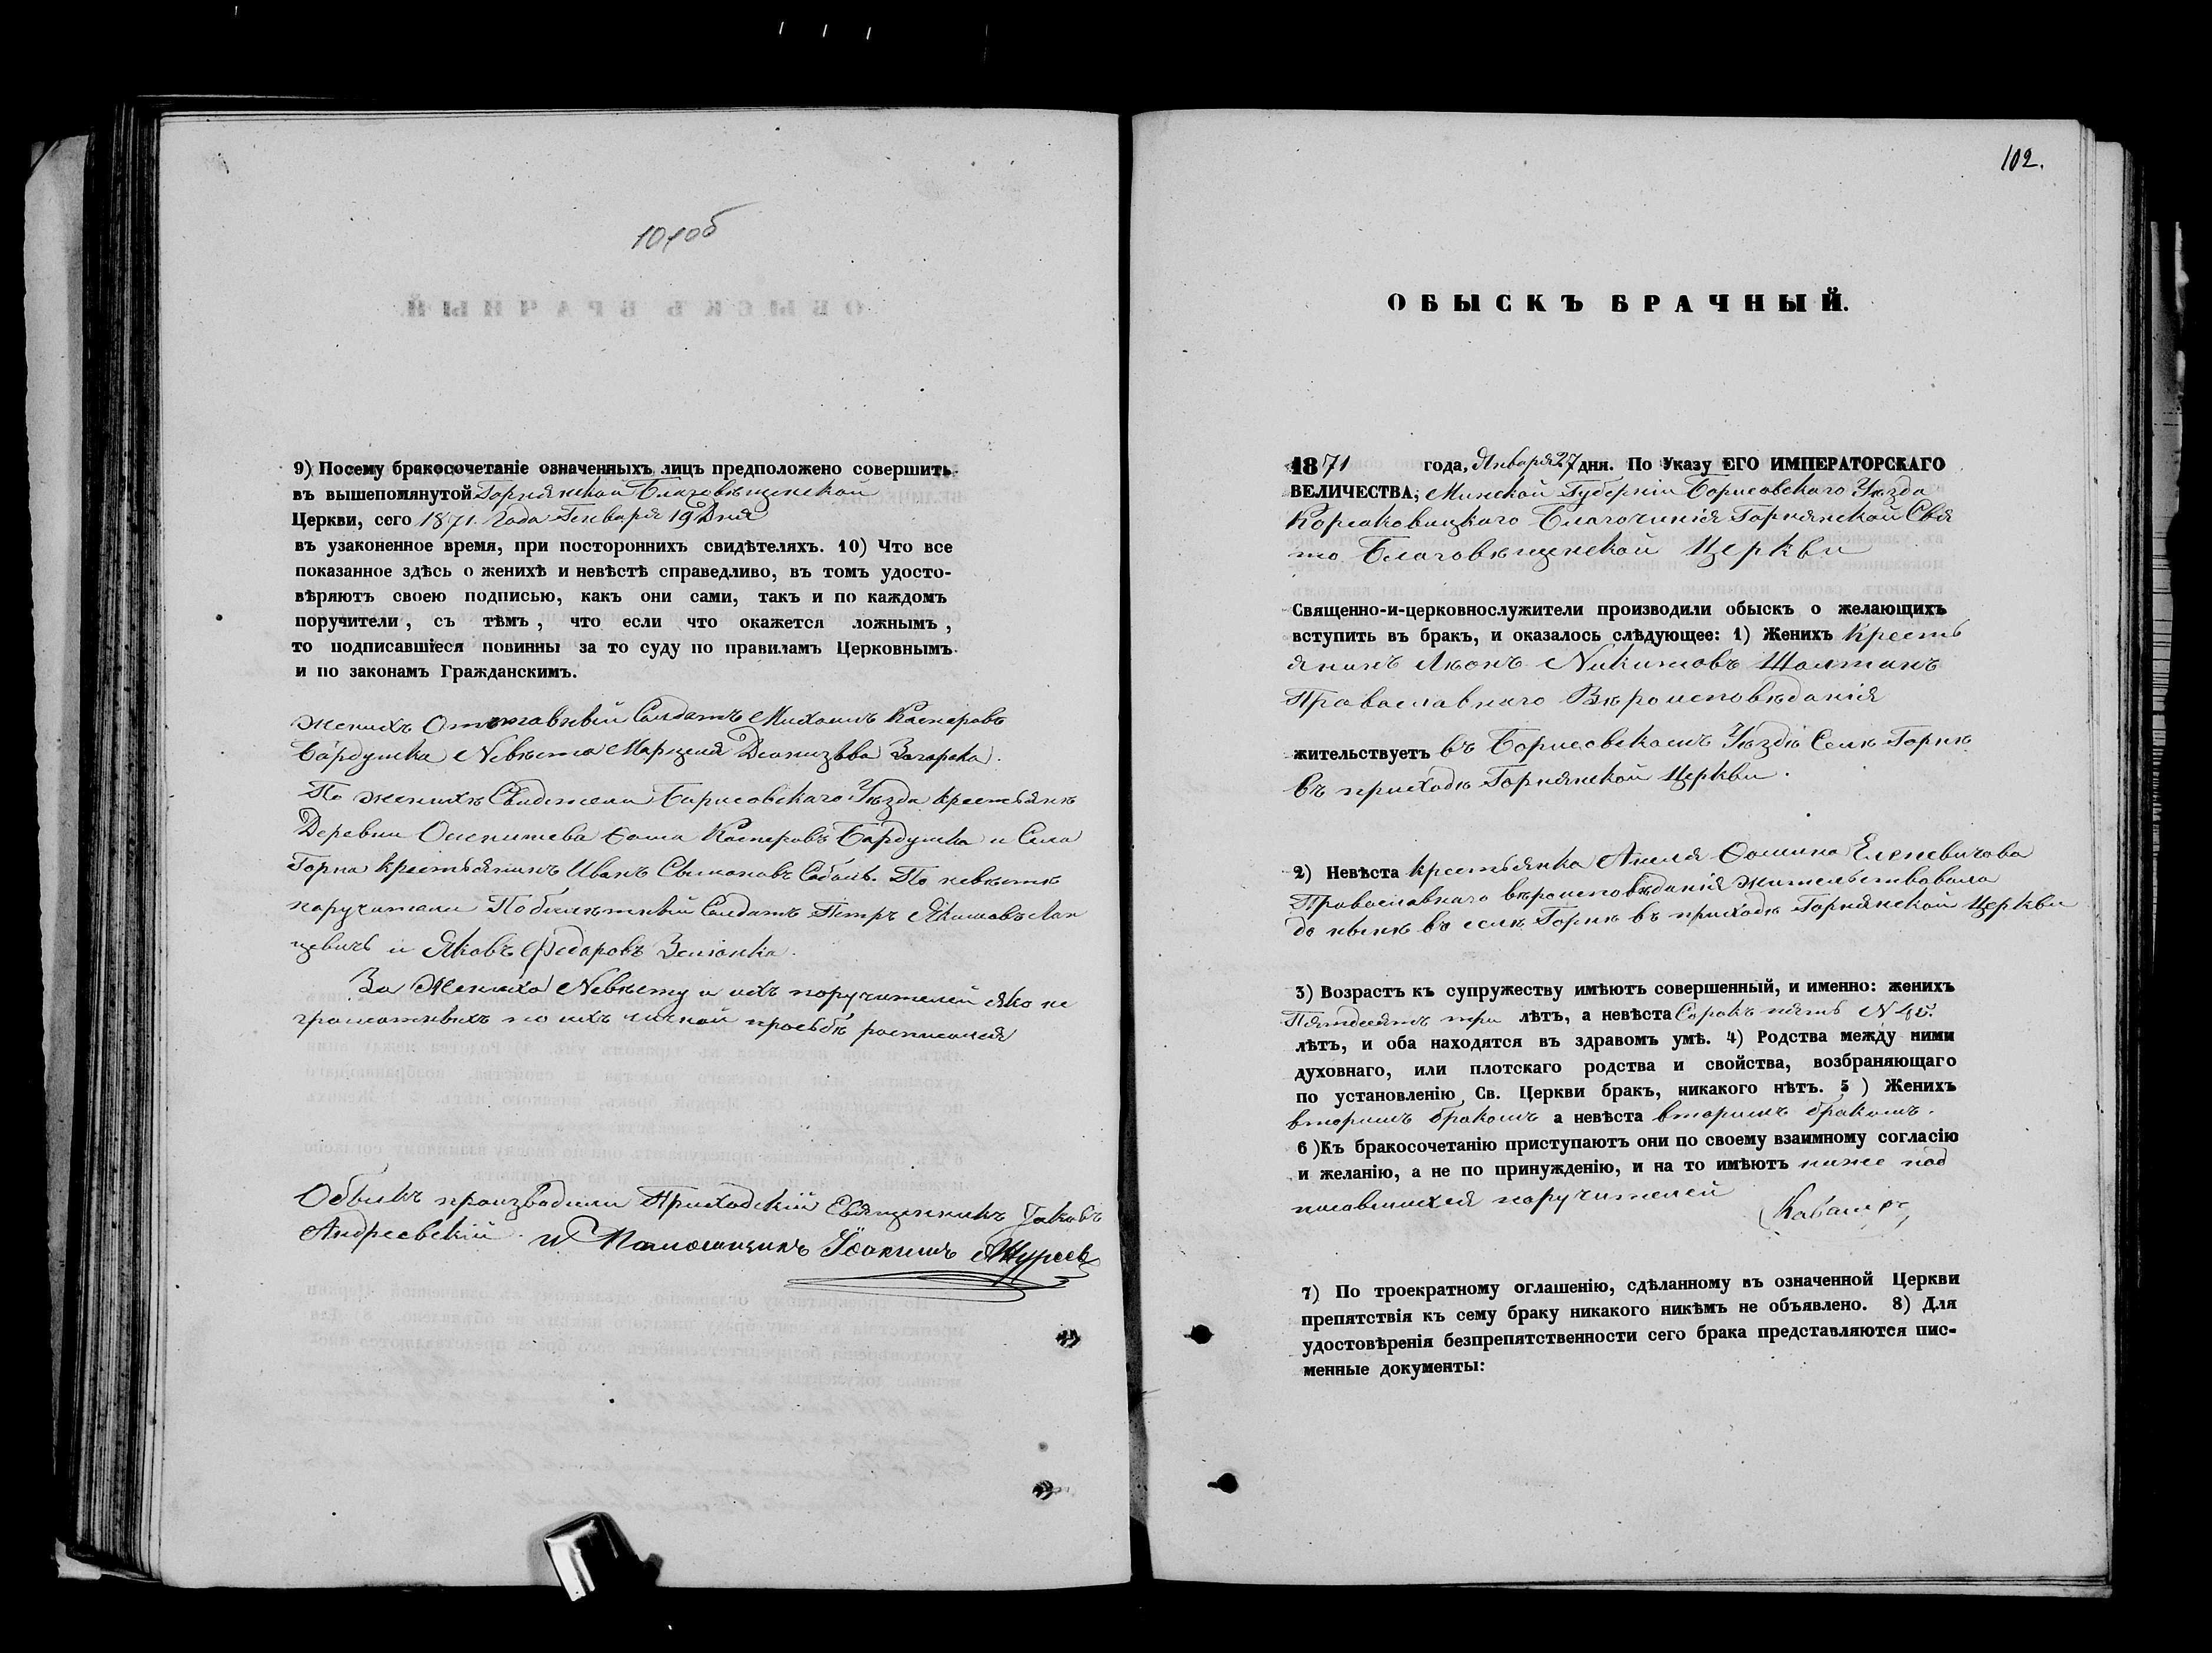 101об
9) Посему бракосочетаніе означенныхъ лицъ предположено совершить
въ вышепомянутой Горнянской Благовѣщенской
Церкви, сего 1871 Года Генваря 19 Дня
въ узаконенное время, при постороннихъ свидѣтеляхъ. 10) Что все
показанное здѣсь о женихѣ и невѣстѣ справедливо, въ томъ удосто-
вѣряютъ своею подписью, какъ они сами, такъ и по каждомъ
поручители, съ тѣмъ, что если что окажется ложнымъ,
то подписавшіеся повинны за то суду по правиламъ Церковнымъ
и по законамъ Гражданскимъ.
женихъ Отставный Солдатъ Михаилъ Касперовъ
Бардушка Невѣста Марцеля
По женихѣ Свидетели Борисовскаго Уѣзда крестьянѣ
Деревни Ѳома Касперовъ Бардушка и Села
Горна крестьянинъ Иванъ Соболь. По невѣстѣ
поручители Побилѣтный Солдатъ Петръ Якимовъ Лап
цевичъ и Яковъ Федоровъ Зелюнка.
За Жениха Невѣсту и ихъ поручителей яко не
грамотныхъ по ихъ личной прозьбѣ росписался
Обыскъ производили Приходскій Священникъ Іаковъ
Андреевскій и
102.
ОБЫСКЪ БРАЧНЫЙ.
1871 года, Января 27 дня. По Указу ЕГО ИМПЕРАТОРСКАГО
ВЕЛИЧЕСТВА, Минской Губерніи Борисовскаго Уѣзда
Корсаковицкаго Благочинія Горнянской Свя
то Благовѣщенской Церкви
Священно-и-церковнослужители производили обыскъ о желающихъ
вступить въ бракъ, и оказалось слѣдующее: 1) Женихъ Кресть
янинъ Лѣонъ Никитовъ Шолтанъ
Православнаго Вѣроисповѣданія
жительствуетъ въ Борисовскомъ Уѣздѣ Селѣ Горнѣ
въ приходѣ Горнянской Церкви.
2) Невѣста крестьянка Анеля Ѳомина Еленевичова
Православнаго вѣроисповѣданія жительствовала
до нынѣ въ селѣ Горнѣ въ приходѣ Горнянской Церкви
3) Возрастъ къ супружеству имѣютъ совершенный, и именно: женихъ
Пятдесятъ три лѣтъ, а невѣста Сорокъ пять N 45.
лѣтъ, и оба находятся въ здравомъ умѣ. 4) Родства между ними
духовнаго, или плотскаго родства и свойства, возбраняющаго
по установленію Св. Церкви бракъ, никакого нѣтъ. 5) Женихъ
вторымъ бракомъ а невѣста вторымъ бракомъ.
6) Къ бракосочетанію приступаютъ они по своему взаимному согласію
и желанію, а не по принужденію, и на то имѣютъ ниже под
писавшихся поручителей
7) По троекратному оглашенію, сдѣланному въ означенной Церкви
препятствія къ сему браку никакого никѣмъ не объявлено. 8) Для
удостовѣренія безпрепятственности сего брака представляются пис-
менные документы: